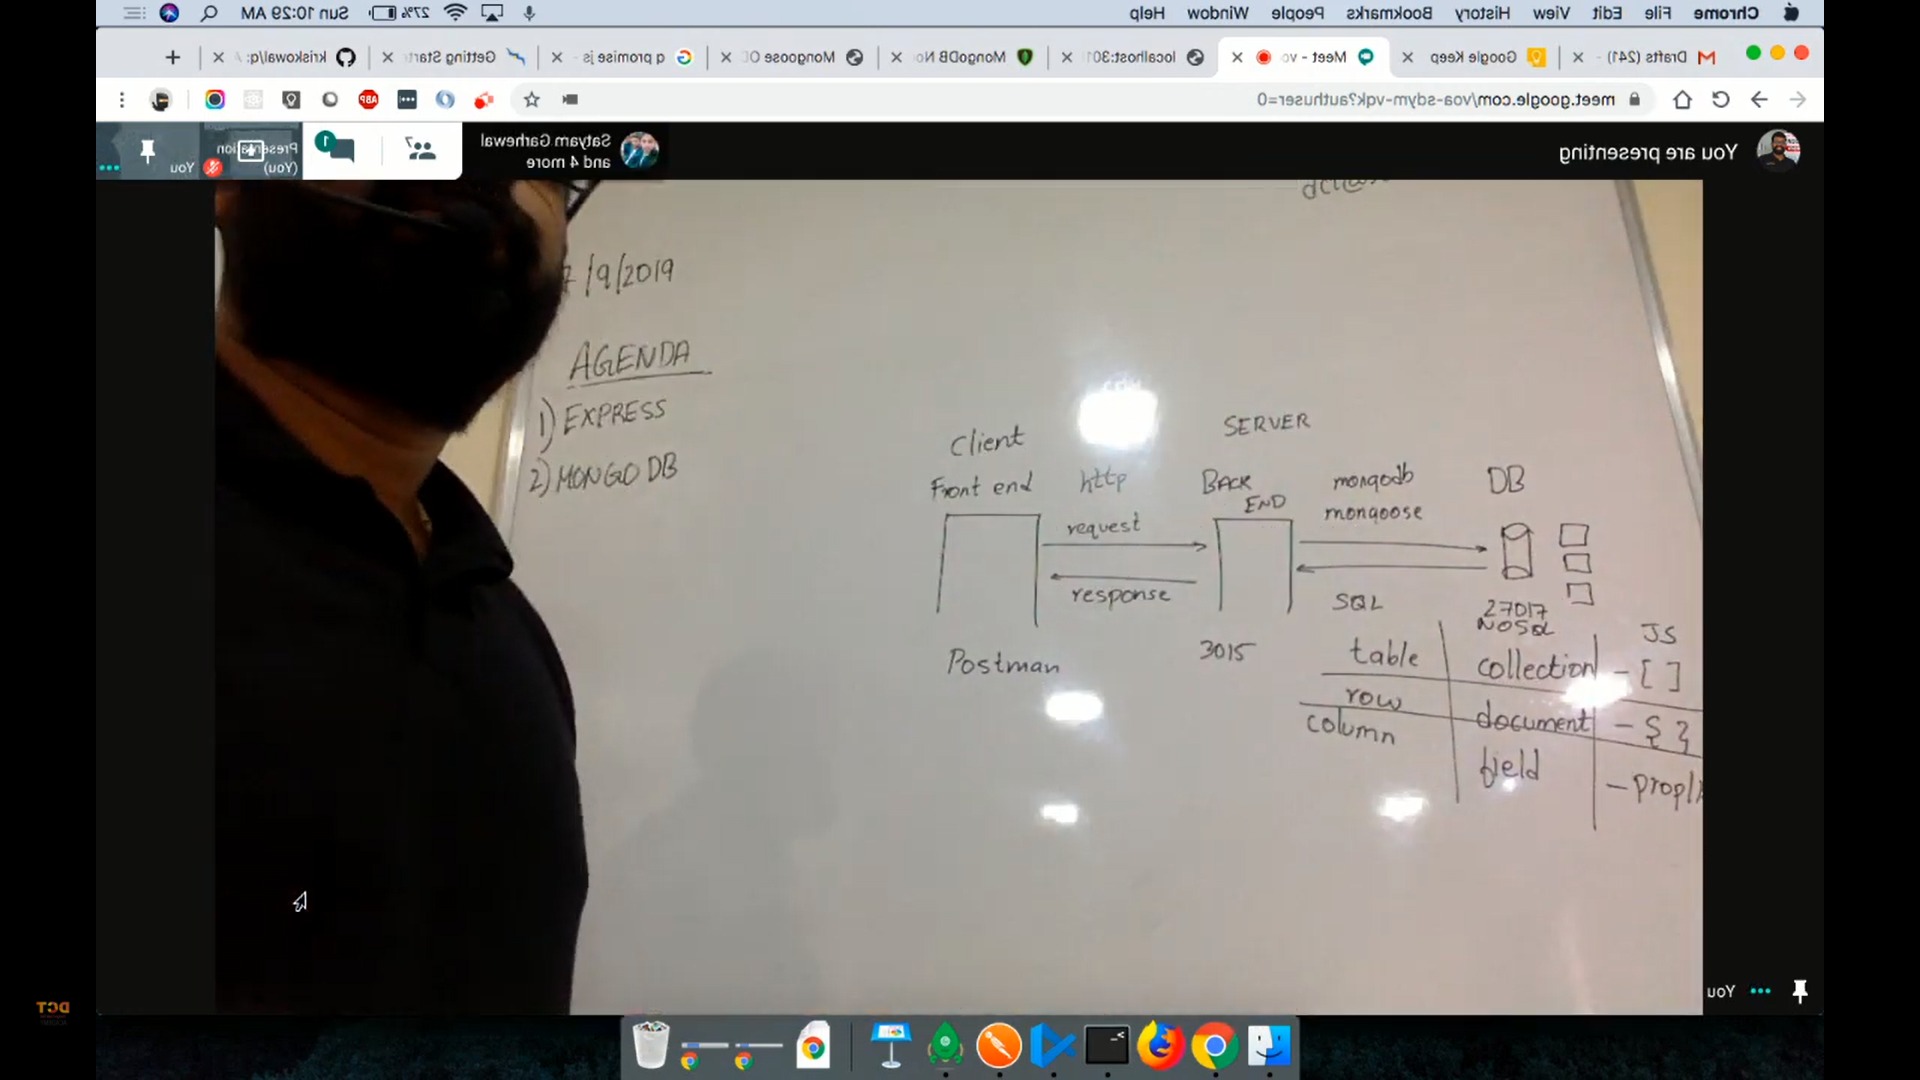 Chrome File Edit View History Bookmarks People Window Help
27% Sun 10:29 AM
Drafts (241) -
Google Keep
Meet - vo
localhost:301
MongoDB No
Mongoose OD
q promise js -
Getting Starte
kriskowal/q:
meet.google.com/voa-sdym-vqk?authuser=0
ABP
You are presenting
Satyam Garhewal
and 4 more
7
1
Presentation
(You)
You
7/9/2019
AGENDA
1) EXPRESS
2) MONGO DB
Client
Front end
http
request
response
Postman
SERVER
BACK
END
3015
mongodb
mongoose
DB
27017
SQL
NOSQL
JS
table
collection
- [ ]
row
document
- { }
column
field
- prop
You
DCT